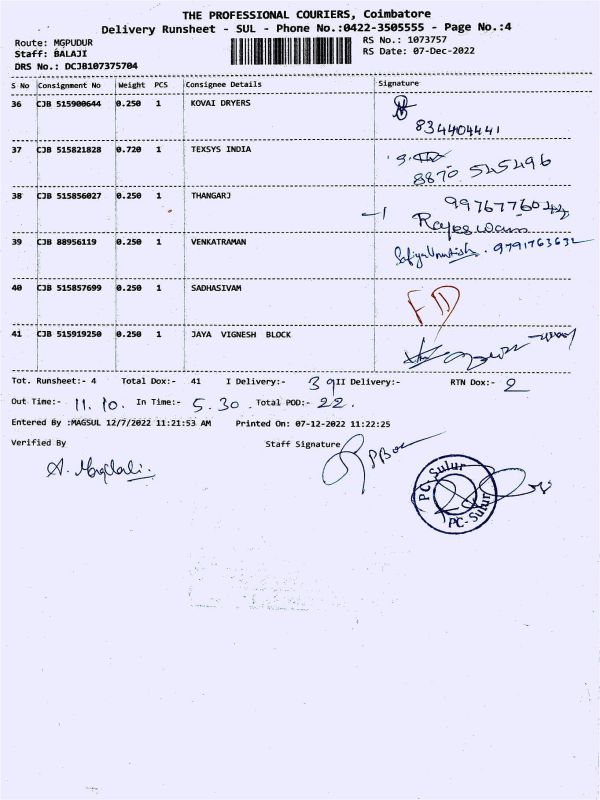 THE PROFESSIONAL COURIERS, Coimbatore
Delivery Runsheet - SUL - Phone No.:0422-3505555 - Page No.:4
Route: MGPUDUR RS No.: 1073757
Staff: BALAJI RS Date: 07-Dec-2022
DRS No.: DCJB107375704
S No Consignment No Weight PCS Consignee Details Signature
36 CJB 515900644 0.250 1 KOVAI DRYERS
834404441
37 CJB 515821828 0.720 1 TEXSYS INDIA
8870 545496
38 CJB 515856027 0.250 1 THANGARJ
Rajeswari
39 CJB 88956119 0.250 1 VENKATRAMAN
9791763632
40 CJB 515857699 0.250 1 SADHASIVAM
41 CJB 515919250 0.250 1 JAYA VIGNESH BLOCK
Tot. Runsheet:- 4 Total Dox:- 41 I Delivery:- 39 II Delivery:- RTN Dox:- 2
Out Time:- 11.10. In Time:- 5.30. Total POD:- 22.
Entered By :MAGSUL 12/7/2022 11:21:53 AM Printed On: 07-12-2022 11:22:25
Verified By Staff Signature
PC-Sulur
PC-Sulur